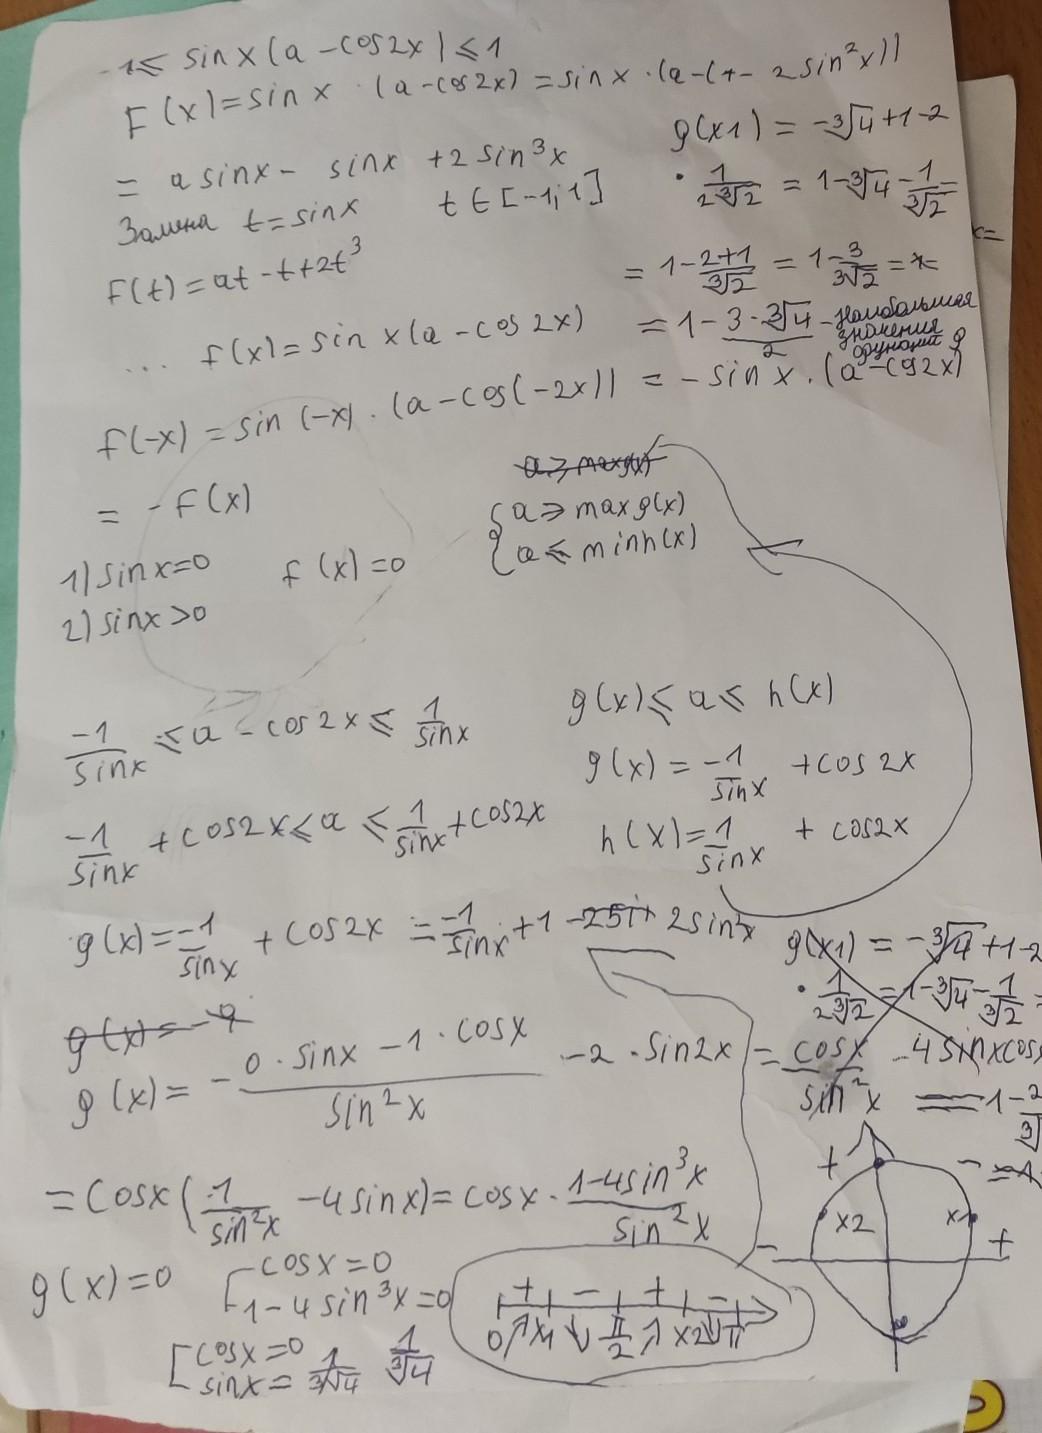 -1 ≤ sin x (a - cos2x) ≤ 1
F(x) = sin x · (a - cos2x) = sin x · (a - (1 - 2 sin²x))
= a sin x - sin x + 2 sin³x
Замена t = sin x t ∈ [-1; 1]
F(t) = at - t + 2t³
g(x1) = -∛4 + 1 - 2
· 1/(2∛2) = 1 - ∛4 - 1/∛2 =
= 1 - (2+1)/∛2 = 1 - 3/∛2 =
= 1 - (3·∛4)/2 - наибольшая значения функций g
... f(x) = sin x (a - cos 2x)
f(-x) = sin(-x) · (a - cos(-2x)) = - sin x · (a - cos2x)
= - F(x)
a ≥ max g(x)
{ a ≥ max g(x)
{ a ≤ min h(x)
1) sin x = 0 f(x) = 0
2) sin x > 0
-1/sin x ≤ a - cos 2x ≤ 1/sin x
-1/sin x + cos2x ≤ a ≤ 1/sin x + cos2x
g(x) ≤ a ≤ h(x)
g(x) = -1/sin x + cos 2x
h(x) = 1/sin x + cos2x
g(x) = -1/sin x + cos2x = -1/sin x + 1 - 2sin²x
g(x1) = -∛4 + 1 - 2
· 1/(2∛2) = 1 - ∛4 - 1/∛2 =
g(x) = -
g(x) = - (0 · sin x - 1 · cos x)/sin²x - 2 · sin2x = cos x/sin²x - 4 sin x cos
= 1 - 2/∛
= cos x (1/sin²x - 4 sin x) = cos x · (1 - 4sin³x)/sin²x
g(x) = 0 [ cos x = 0
1 - 4 sin³x = 0
[ cos x = 0
sin x = 1/∛4 1/∛4
+ - + -
0 ↗ x1 ↘ π/2 ↗ x2 ↘ π
+ -
x2 x1
- +